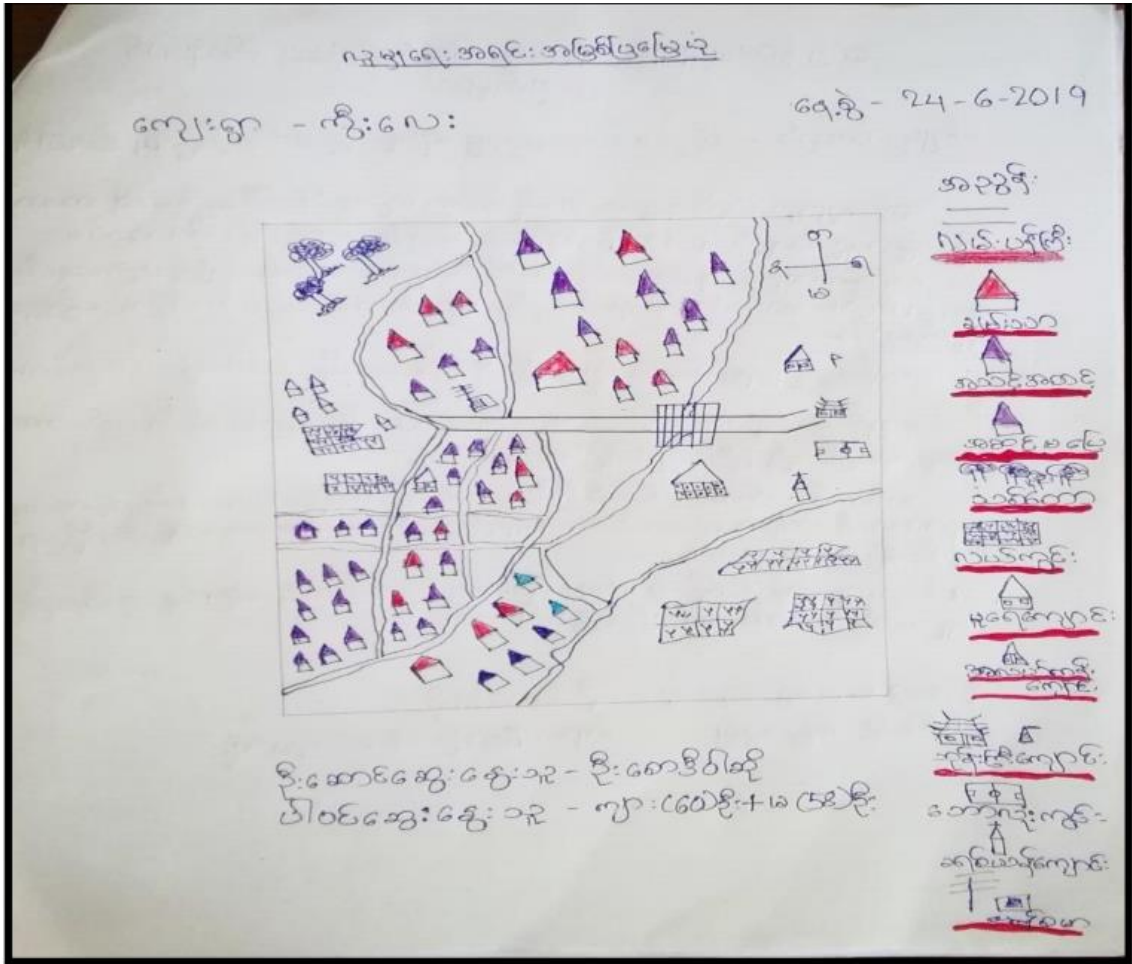 လူမှုရေး အရင်းအမြစ်ပြမြေပုံ
ကျေးရွာ - ကွီးလေး
နေ့စွဲ - 24-6-2019
အညွှန်း
လမ်းပန်းကြီး
ချမ်းသာ
အသင့်အတင့်
အဆင်မပြေ
သစ်တော
လယ်ကွင်း
မူရေကျောင်း
အလယ်တန်း
ကျောင်း
ဘုန်းကြီးကျောင်း
ဘောလုံးကွင်း
ခရစ်ယာန်ကျောင်း
ဦးဆောင်ဆွေးနွေးသူ - ဦးစောဒီဝါဆို
ပါဝင်ဆွေးနွေးသူ - ကျား (60)ဦး + မ (58)ဦး